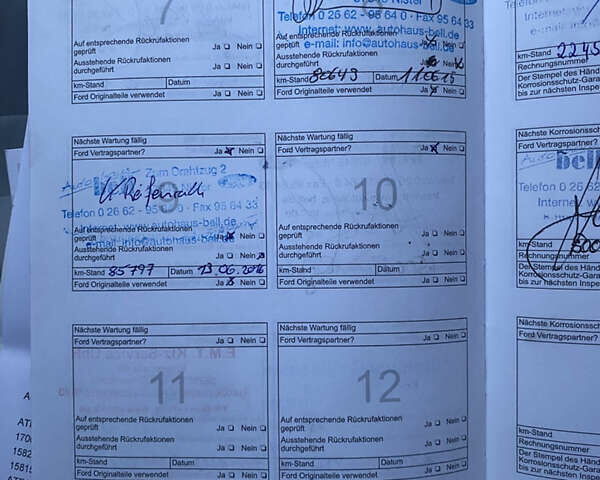 7
Auf entsprechende Rückrufaktionen
geprüft Ja Nein
Ausstehende Rückrufaktionen
durchgeführt Ja Nein
km-Stand Datum
Ford Originalteile verwendet Ja Nein
Telefon 0 26 62 - 95 64 0 · Fax 95 64 33
Internet: www.autohaus-bell.de
e-mail: info@autohaus-bell.de
Auf entsprechende Rückrufaktionen
geprüft
Ausstehende Rückrufaktionen
durchgeführt Ja Nein
km-Stand 80643 Datum 110615
Ford Originalteile verwendet Ja Nein
Nächste Wartung fällig
Ford Vertragspartner? Ja Nein
9
Zum Drahtzug 2
Telefon 0 26 62 - 95 64 0 - Fax 95 64 33
Internet: www.autohaus-bell.de
e-mail: info@autohaus-bell.de
Auf entsprechende Rückrufaktionen
geprüft Ja Nein
Ausstehende Rückrufaktionen
durchgeführt Ja Nein
km-Stand 85797 Datum 13.06.2016
Ford Originalteile verwendet Ja Nein
Nächste Wartung fällig
Ford Vertragspartner? Ja Nein
10
Auf entsprechende Rückrufaktionen
geprüft Ja Nein
Ausstehende Rückrufaktionen
durchgeführt Ja Nein
km-Stand Datum
Ford Originalteile verwendet Ja Nein
Nächste Wartung fällig
Ford Vertragspartner? Ja Nein
11
Auf entsprechende Rückrufaktionen
geprüft Ja Nein
Ausstehende Rückrufaktionen
durchgeführt Ja Nein
km-Stand Datum
Ford Originalteile verwendet Ja Nein
Nächste Wartung fällig
Ford Vertragspartner? Ja Nein
12
Auf entsprechende Rückrufaktionen
geprüft Ja Nein
Ausstehende Rückrufaktionen
durchgeführt Ja Nein
km-Stand Datum
Ford Originalteile verwendet Ja Nein
km-Stand
Rechnungsnummer
Der Stempel des Händ
Korrosionsschutz-Gara
bis zur nächsten Inspe
Nächste Korrosionssch
bell
Telefon 0 26
Internet: w
km-Stand
Rechnungsnummer
Der Stempel des Händ
Korrosionsschutz-Gara
bis zur nächsten Inspe
Nächste Korrosionssch
km-Stand
Rechnungsnummer
Der Stempel des Händ
Korrosionsschutz-Gara
bis zur nächsten Inspe